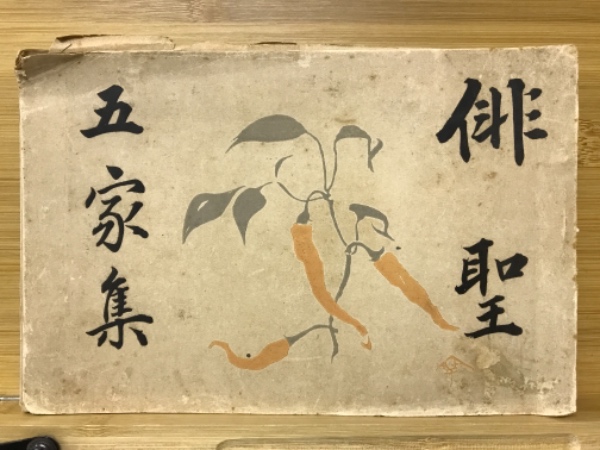 俳聖
五家集